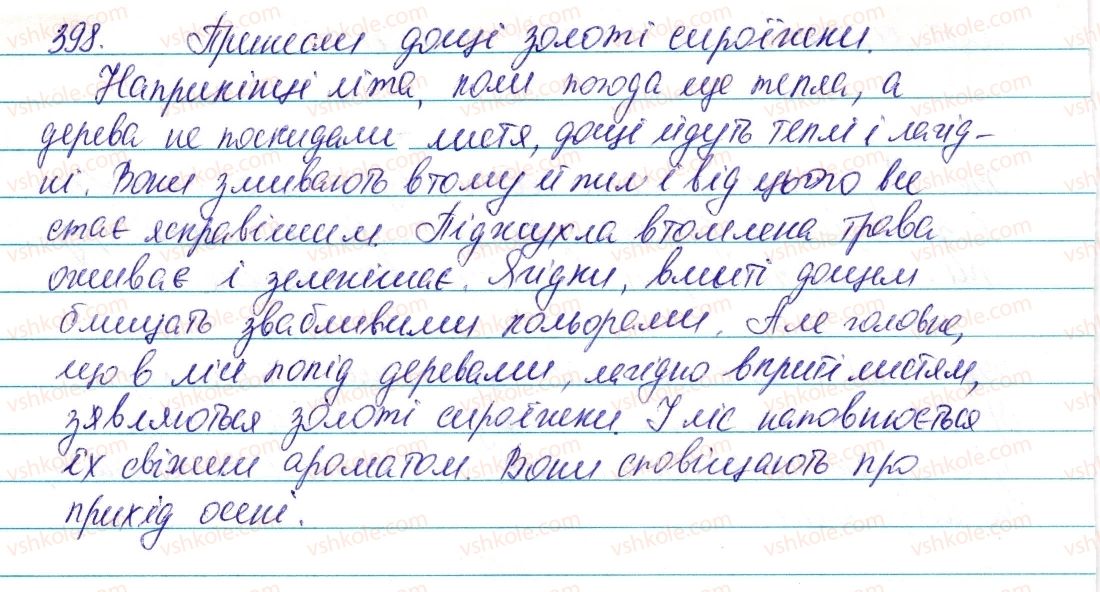 398. Принесли дощі золоті сироїжки.
Наприкінці літа, коли погода ще тепла, а
дерева не поскидали листя, дощі йдуть теплі і лагід-
ні. Вони змивають втому й пил і від цього все
стає яскравішим. Піджухла втомлена трава
оживає і зеленішає. Ягідки, вмиті дощем
блищать звабливими кольорами. Але головне,
що в лісі попід деревами, лагідно вкриті листям,
зявляються золоті сироїжки. І ліс наповнюється
їх свіжим ароматом. Вони сповіщають про
прихід осені.